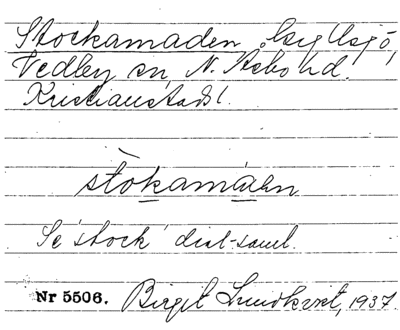 Stockamaden, äng, Åsjö,
Vedby sn, N. Åsbo hd.
Kristianstads l.
stòkamàᵈen
Se 'stock' dial-saml.
Nr 5506. Birgit Lundkvist, 1937.